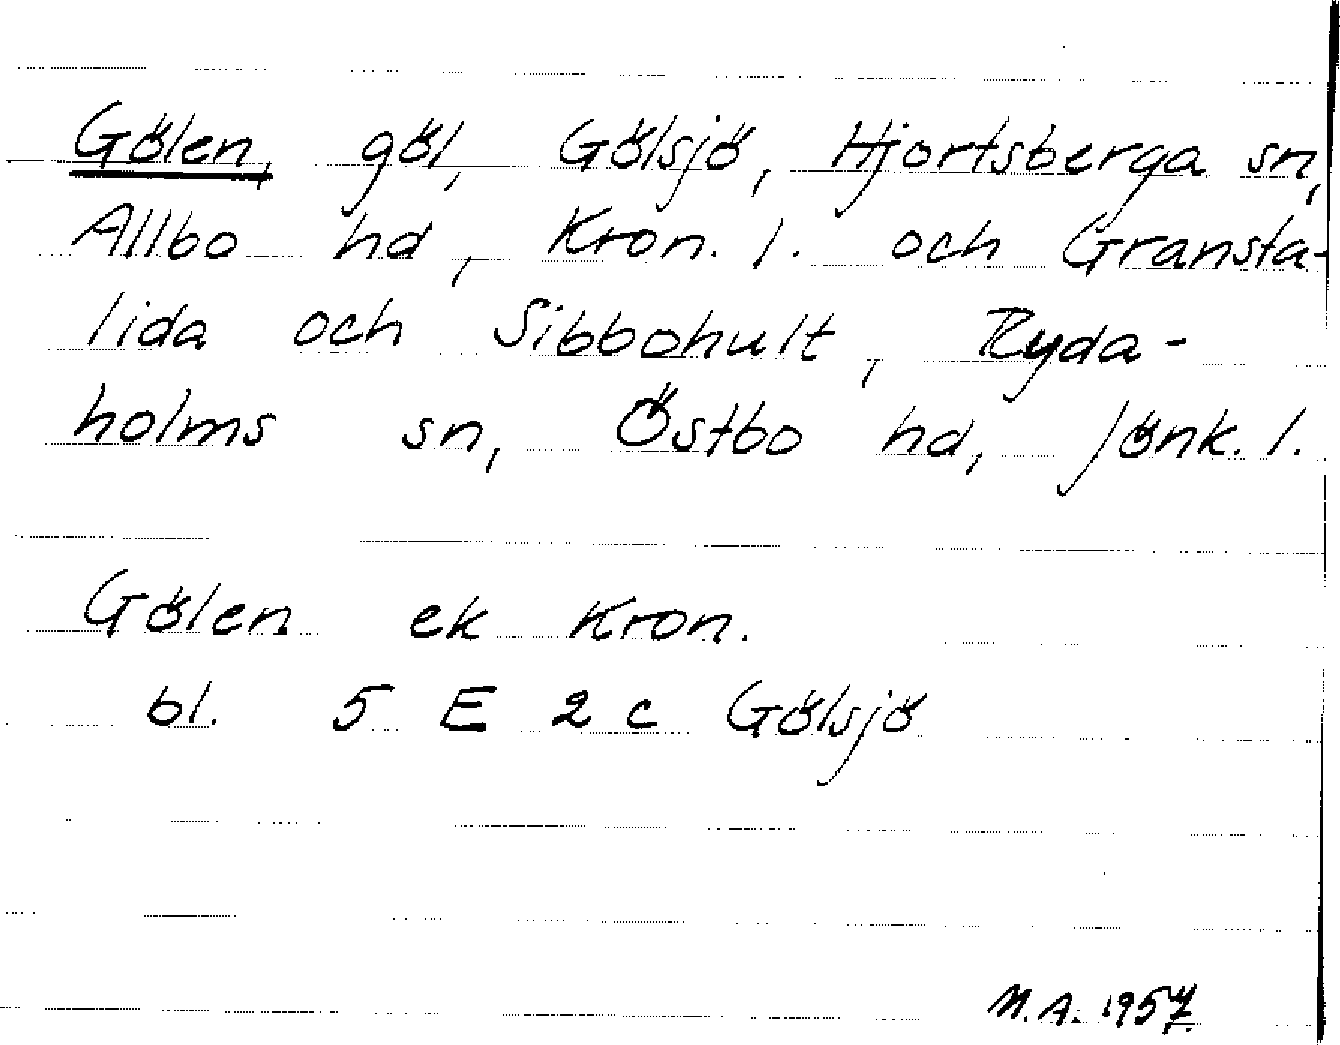 Gölen, göl, Gölsjö, Hjortsberga sn,
Allbo hd, Kron. l. och Gransta-
lida och Sibbohult, Ryda-
holms sn, Östbo hd, Jönk. l.
Gölen ek Kron.
bl. 5 E 2 c Gölsjö
M.A. 1957